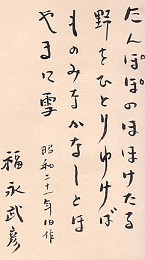 たんぽぽのほほけたる
野をひとりゆけば
ものみなかなしとほ
やまに雪
昭和二十一年旧作
福永武彦